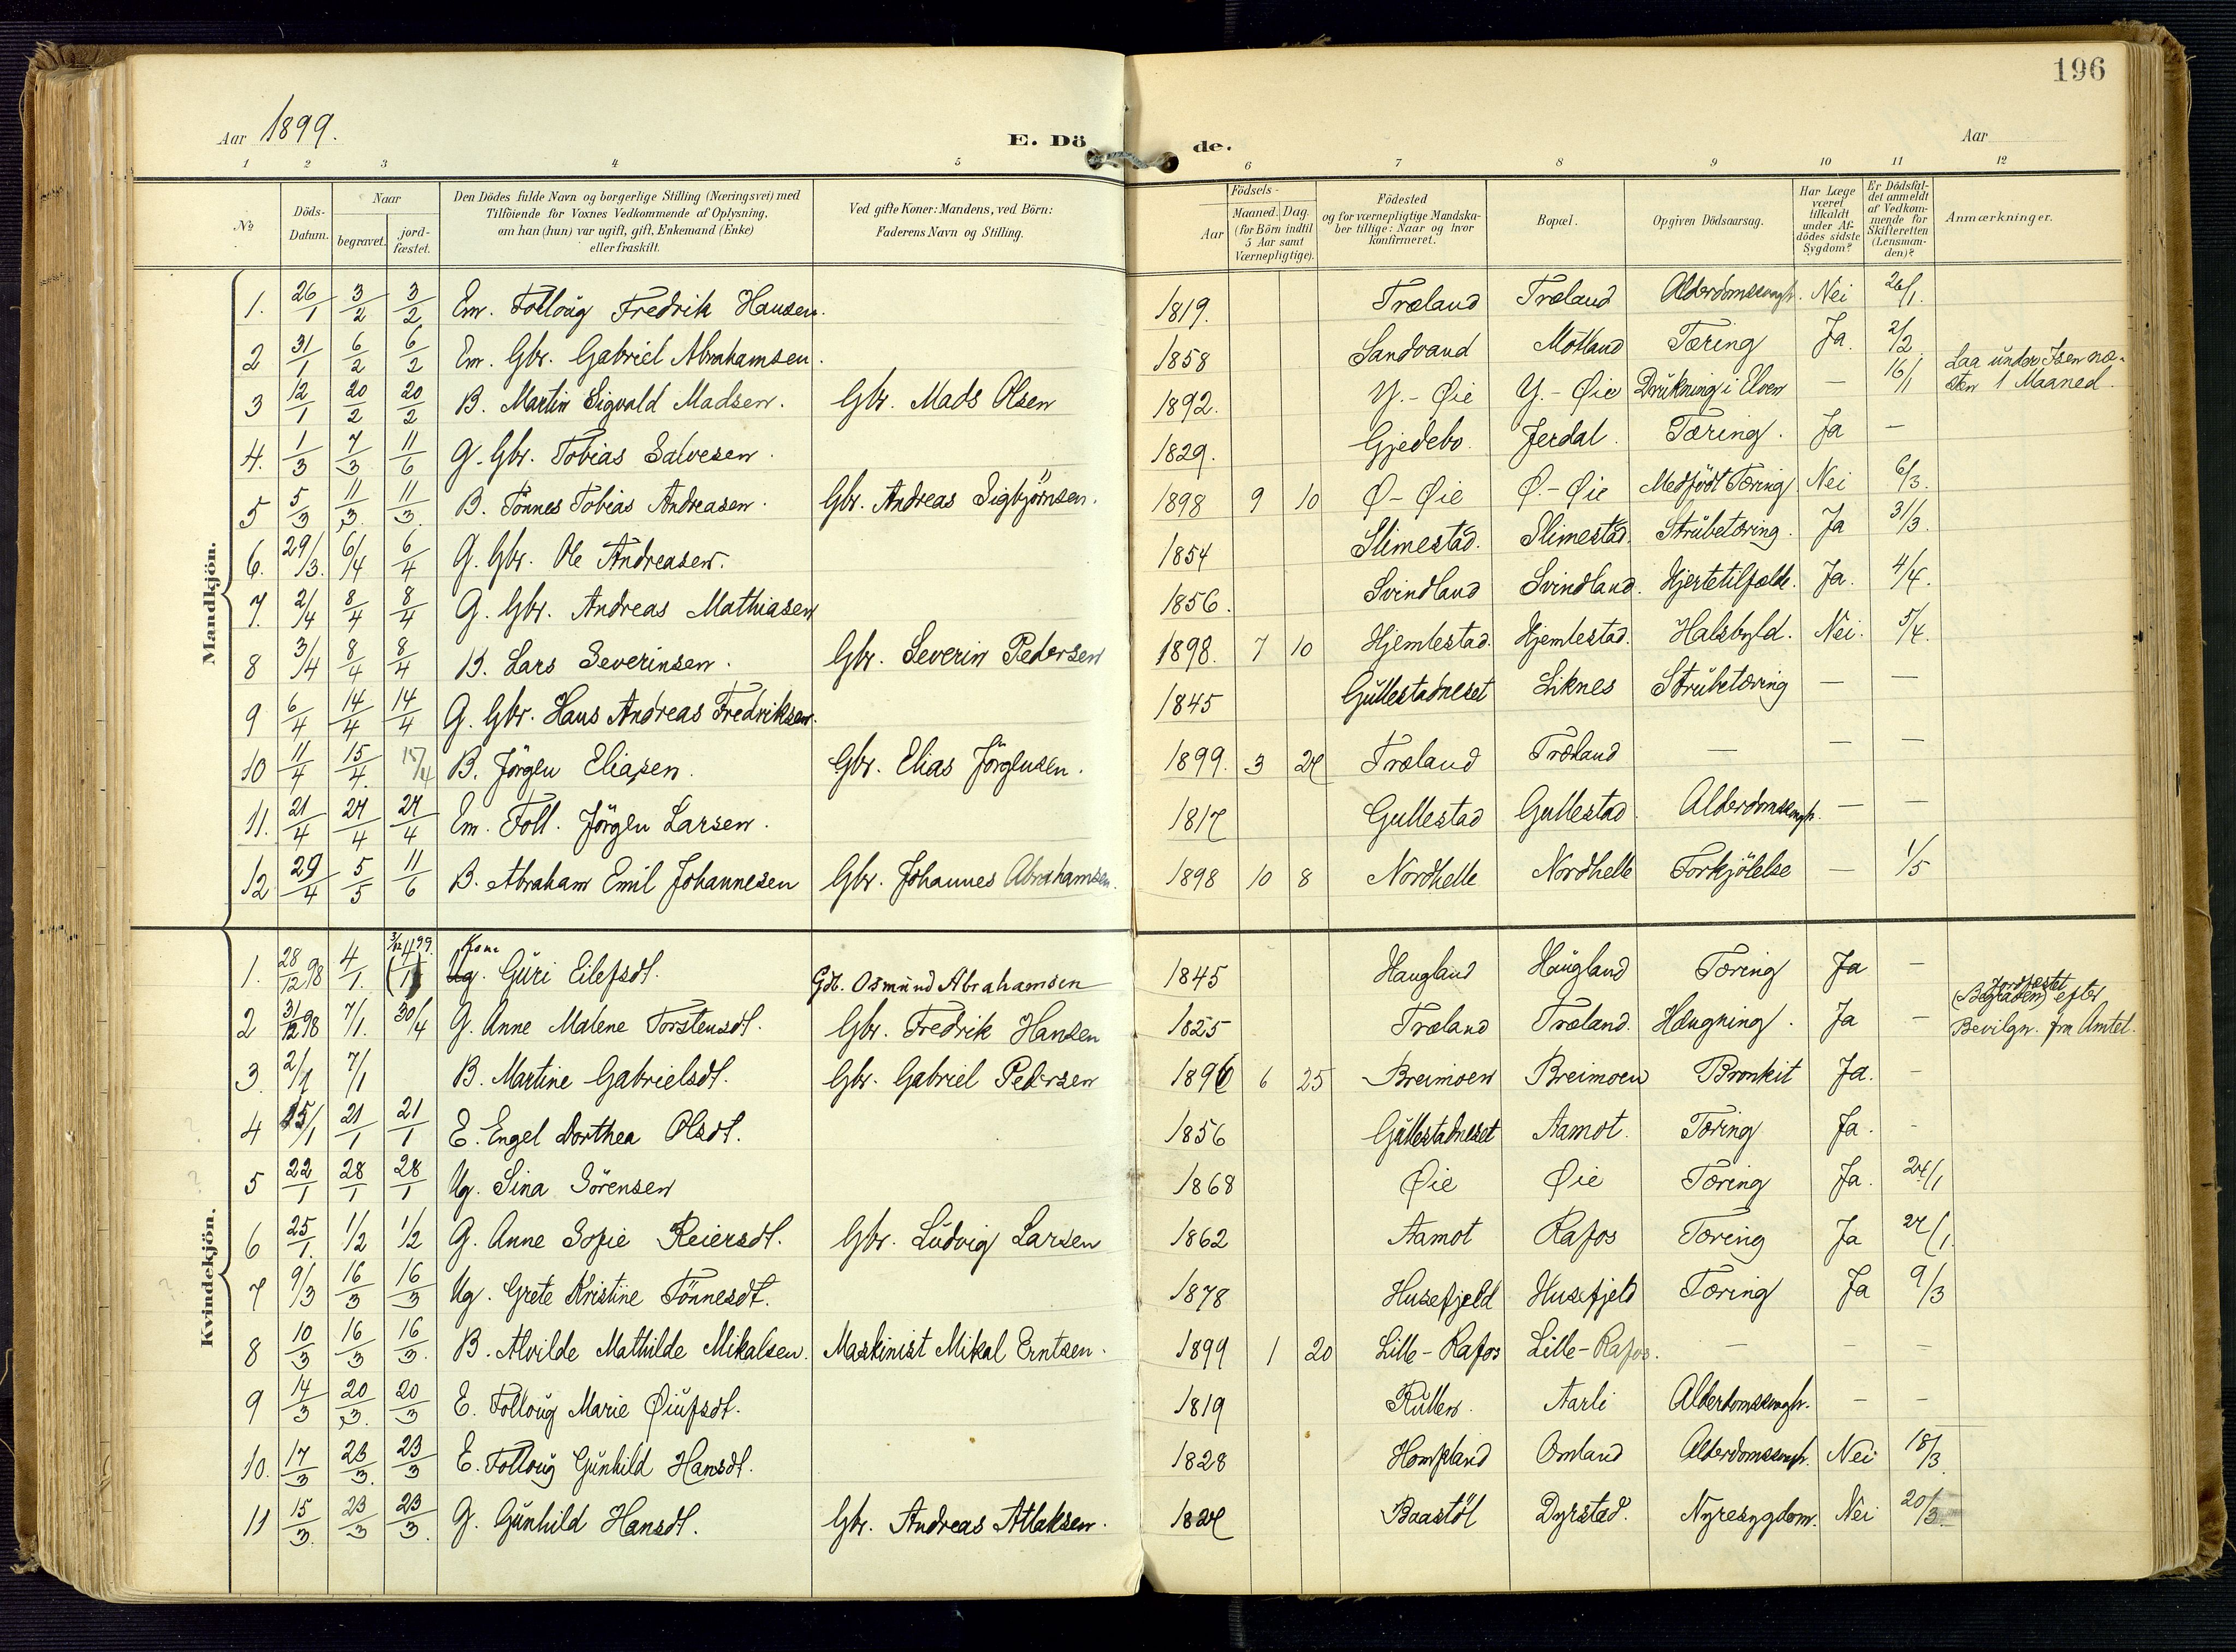 196
Aar 1899.
E. Dö de.
Aar
1 2 3 4 5 6 7 8 9 10 11 12
No
Döds-Datum.
Naar
begravet.
jord-fæstet.
Den Dödes fulde Navn og borgerlige Stilling (Næringsvei) med
Tilföiende for Voxnes Vedkommende af Oplysning,
om han (hun) var ugift, gift, Enkemand (Enke)
eller fraskilt.
Ved gifte Koner: Mandens, ved Börn:
Faderens Navn og Stilling.
Födsels-
Aar
Maaned. Dag
(for Börn indtil
5 Aar samt
Værnepligtige).
Födested
og for værnepligtige Mandska-
ber tillige: Naar og hvor
konfirmeret.
Bopæl.
Opgiven Dödsaarsag.
Har Læge
været
tilkaldt
under Af-
dödes sidste
Sygdom?
Er Dödsfal-
det anmeldt
af Vedkom-
mende for
Skifteretten
(Lensman-
den)?
Anmærkninger.
Mandkjön.
1. 26/1 3/2 3/2 Em. Folloug Fredrik Hansen. 1819. Træland Træland Alderdomssvagh. Nei 26/1.
2 31/1 6/2 6/2 Em. Gbr. Gabriel Abrahamsen. 1858 Sandvand Mötland Tæring Ja. 2/2
3 12/1 20/2 20/2 B. Martin Sigvald Madsen. Gbr. Mads Olsen 1892. Y.-Øie Y.-Øie Drukning i Elven — 16/1 Laa under Isen næ-
sten 1 Maaned.
4. 1/3 7/3 11/6 G. Gbr. Tobias Salvesen. 1829. Gjedebo. Jerdal. Tæring. Ja —
5 5/3 11/3. 11/3. B. Tönnes Tobias Andreasen. Gbr. Andreas Sigbjörnsen. 1898 9 10 Ø-Øie Ø.-Øie Medfödt Tæring Nei 6/3.
6. 29/3. 6/4 6/4 G. Gbr. Ole Andreasen. 1854 Slimestad. Slimestad. Strubetæring. Ja 31/3.
7. 2/4 8/4 8/4 G. Gbr. Andreas Mathiasen 1856. Svindland Svindland. Hjertetilfælde. Ja. 4/4.
8 3/4 8/4 8/4 B. Lars Severinsen. Gbr. Severin Pedersen 1898. 7 10 Hjemlestad. Hjemlestad. Halsbyld. Nei. 5/4.
9 6/4 14/4 14/4 G. Gbr. Hans Andreas Fredriksen. 1845 Gullestadneset Liknes Strubetæring — —
10 11/4 15/4. 15/4 B. Jörgen Eliasen. Gbr. Elias Jörgensen. 1899. 3 24 Træland Træland — — —
11. 21/4 27/4 27/4 Em. Foll. Jörgen Larsen. 1817 Gullestad Gullestad. Alderdomssvagh. — —
12 29/4 5/5 11/6 B. Abraham Emil Johannesen Gbr. Johannes Abrahamsen. 1898 10 8 Nordhelle Nordhelle Forkjölelse — 1/5
Kvindekjön.
1. 28/12 98 4/1. Kone Ug. Guri Eilefsdt. Gdb. Osmund Abrahamsen 1845 Haugland Haugland Tæring Ja —
2 31/12 98 7/1. 30/4 G. Anne Malene Torstensdt. Gbr. Fredrik Hansen 1825 Træland Træland. Hængning. Ja — Jordfæstet
(Begraven) efter
Bevilgn. fra Amtet.
3. 2/1 7/1 B. Martine Gabrielsdt. Gbr. Gabriel Pedersen 1896 6 25 Breimoen Breimoen Bronkit Ja. -
4 15/1 21/1 21/1 E. Engel Dorthea Olsdt. 1856 Gullestadneset Aamot. Tæring Ja. -
5 22/1 28/1 28/1 Ug. Sina Sörensen 1868 Øie Øie Tæring Ja. 24/1
6 25/1. 1/2 1/2 G. Anne Sofie Reiersdt. Gbr. Ludvig Larsen 1862 Aamot Rafos Tæring Ja 27/1.
7 9/3 16/3 16/3 Ug. Grete Kristine Tönnesdt. 1878 Husefjeld Husefjeld Tæring Ja 9/3
8 10/3 16/3 16/3. B. Alvilde Mathilde Mikalsen. Maskinist Mikal Erntsen. 1899 1 20 Lille-Rafos Lille-Rafos. — — —
9 14/3 20/3. 20/3 E. Folloug Marie Øiufsdt. 1819 Rullen. Aarli Alderdomssvagh. — —
10. 17/3 23/3. 23/3 E. Folloug Gunhild Hansdt. 1828 Hompland Omland Alderdomssvagh. Nei 18/3.
11 15/3. 23/3 23/3. G. Gunhild Hansdt. Gbr. Andreas Atlaksen. 1824 Baastöl Dyrstad. Nyresygdom. Nei 20/3.